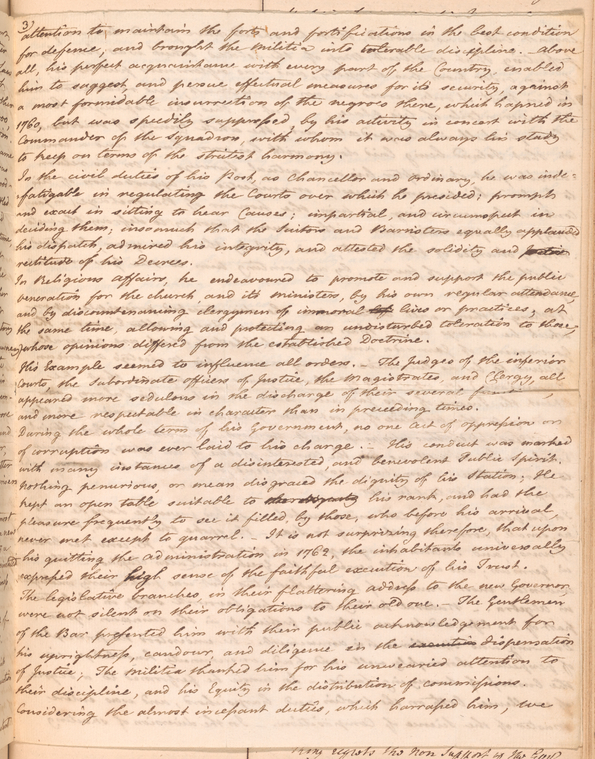 3)
attention to maintain the forts and fortifications in the best condition
for defense, and brought the Militia into tolerable discipline. Above
all, his perfect acquaintance with every part of the Country, enabled
him to suggest, and persue effectual measures for its security, against
a most formidable insurrection of the negroes there, which hapned in
1760, but was speedily suppressed by his activity in concert with the
Commander of the Squadron, with whom it was always his study
to keep on terms of the strictest harmony.
In the civil duties of his Post, as Chancellor and Ordinary, he was inde-
fatigable in regulating the Courts over which he presided; prompt
and exact in sitting to hear Causes; impartial, and circumspect in
deciding them; insomuch that the Suitors and Barristers equally applauded
his dispatch, admired his integrity, and attested the solidity and
rectitude of his Decrees.
In Religious affairs, he endeavoured to promote and support the public
veneration for the church and its ministers, by his own regular attendance
and by discountenancing clergymen of immoral lives or practices; at
the same time, allowing and protecting an undisturbed toleration to those,
whose opinions differed from the established Doctrine.
His Example seemed to influence all orders. – The Judges of the inferior
Courts, the Subordinate officers of Justice, the Magistrates, and Clergy, all
appeared more sedulous in the discharge of their several
and more respectable in character than in preceeding times.
During the whole term of his Government, no one act of oppression or
of corruption was ever laid to his charge. – His conduct was marked
with many instances of a disinterested, and benevolent Public Spirit.
Nothing penurious, or mean disgraced the dignity of his Station; He
kept an open table suitable to the dignity his rank, and had the
pleasure frequently to see it filled, by those, who before his arrival
never met except to quarrel. – It is not surprizing therefore, that upon
his quitting the administration in 1762, the inhabitants universally
expressed their high sense of the faithful execution of his Trust.
The legislative branches, in their flattering address to the new Governor,
were not silent on their obligations to their old one. – The Gentlemen
of the Bar presented him with their public acknowledgement for
his uprightness, candour, and diligence in the execution dispensation
of Justice; The Militia thanked him for his unwearied attention to
their discipline, and his Equity in the distribution of commissions.
Considering the almost incessant duties, which harrassed him; we